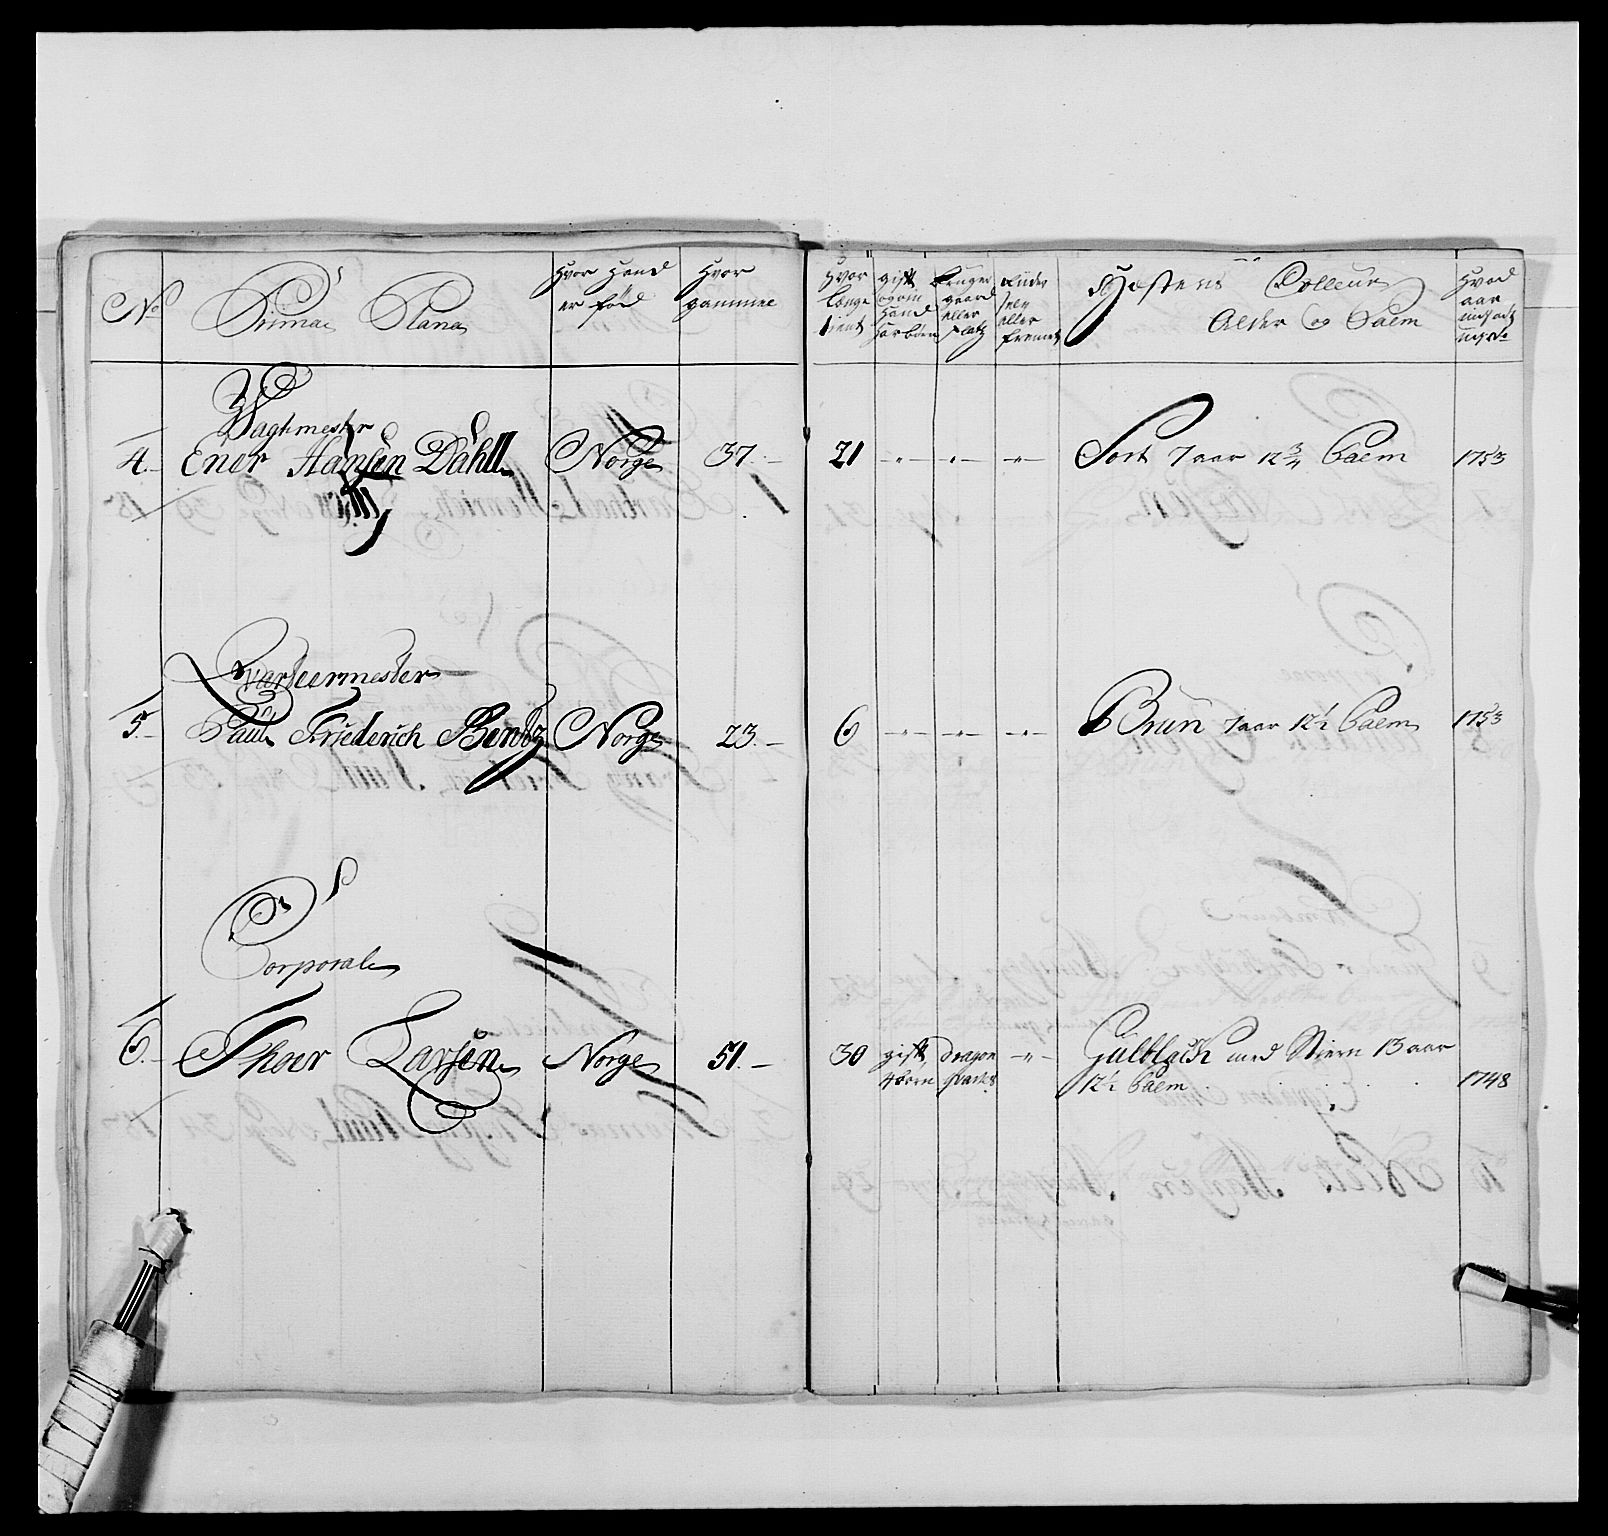 No
Prima Plana
Hvor Hand
er fød
Hvor
gammel
Hvor
længe
tient
gift
og om
Hand
har børn
bruger
gaard
eller
platz
Rider
selv
eller
fremet
Hæstens Colleur
Alder og Palm
Hvad
aar
indsadt
Vagtmester
4. Ener Hansen Dahll Norge 37. 21 Sort 7 aar 12 3/4 Palm 1753
Qvarteermester
5. Paul Friederich Bentz Norge 23. 6 Brun 7 aar 12 1/2 Palm 1753
Corporal
6. Thoer Larsen Norge 51. 30 gift dragon Gulblach med Stiern 13 aar
4 børn qvarter 12 1/2 Palm 1748